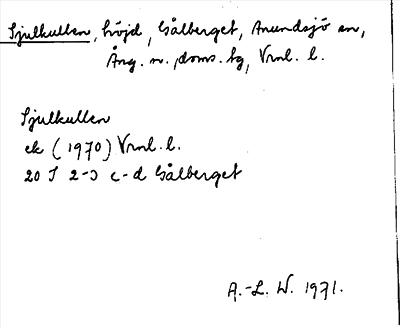 Sjulkullen, höjd, Gålberget, Anundsjö sn,
Ång. n. doms. bg, Vrnl. l.
Sjulkullen
ek (1970) Vrnl. l.
20 I 2-3 c-d Gålberget
A.-L. W. 1971.